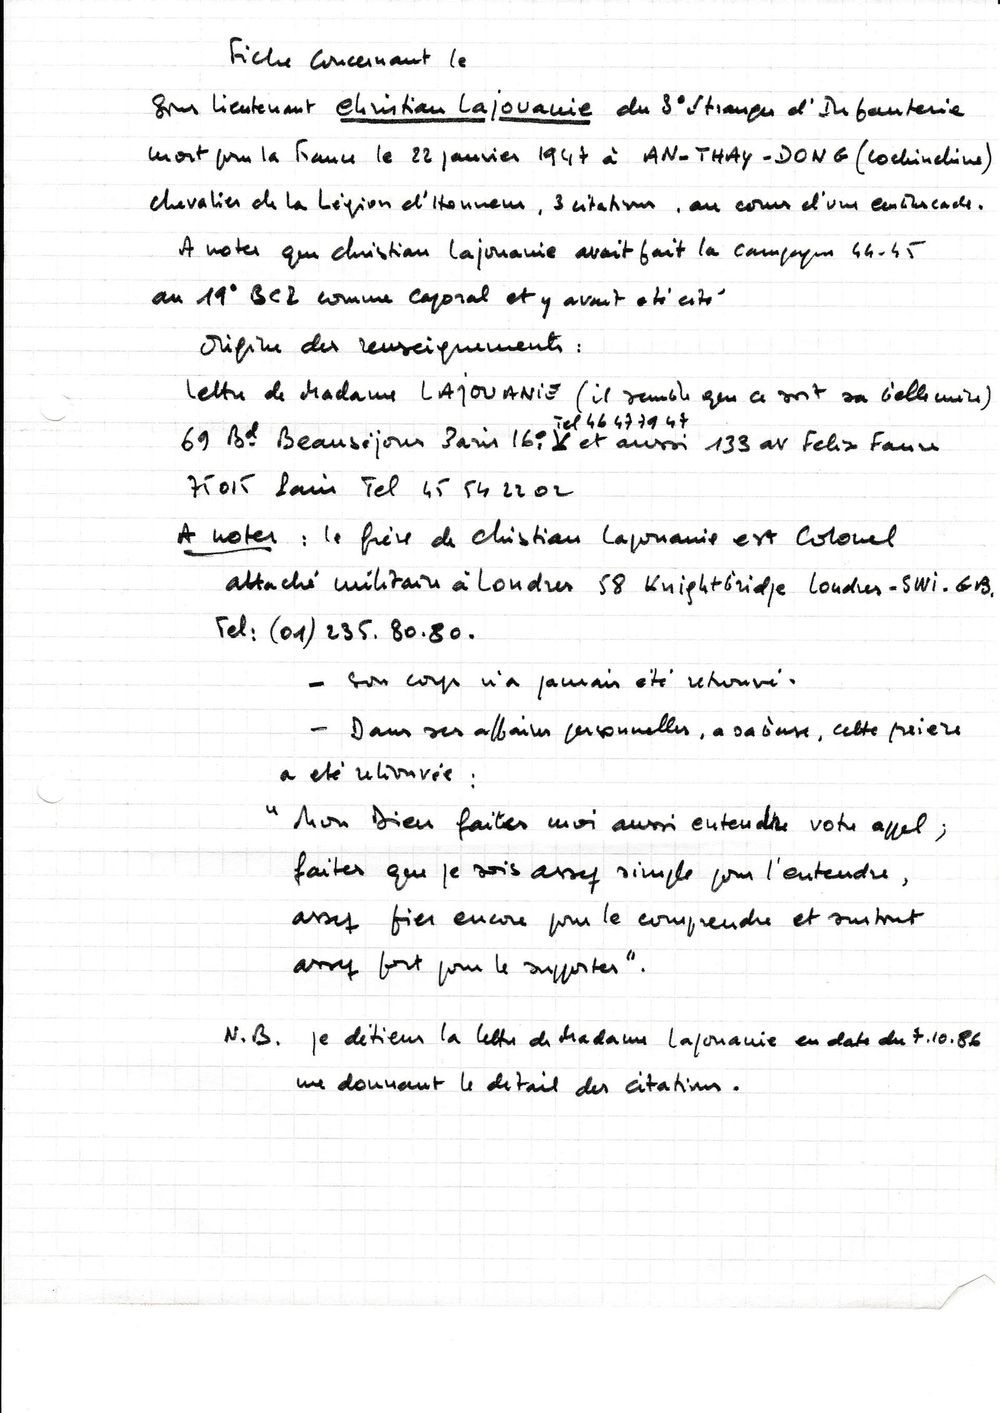 Fiche concernant le
Sous Lieutenant Christian Lajouanie du 3° Etranger d'Infanterie
mort pour la France le 22 janvier 1947 à AN-THAY-DONG (Cochinchine)
chevalier de la Légion d'Honneur, 3 citations, au cours d'une embuscade.
A noter que Christian Lajouanie avait fait la campagne 44-45
au 19° BCP comme caporal et y avait été cité
Origine des renseignements :
lettre de Madame LAJOUANIE (il semble que ce soit sa belle mère)
Tel 46 47 79 47
69 Bd Beauséjour Paris 16° et aussi 133 av Felix Faure
75015 Paris Tel 45 54 22 02
A noter : le frère de Christian Lajouanie est Colonel
attaché militaire à Londres 58 Knightbridge Londres - SW1. GB.
Tel: (01) 235. 80.80.
- Son corps n'a jamais été retrouvé.
- Dans ses affaires personnelles, a sa base, cette prière
a été retrouvée :
" Mon Dieu faites moi aussi entendre votre appel ;
faites que je sois assez simple pour l'entendre,
assez fier encore pour le comprendre et surtout
assez fort pour le supporter".
N.B. je détiens la lettre de Madame Lajouanie en date du 7.10.86
me donnant le détail des citations.